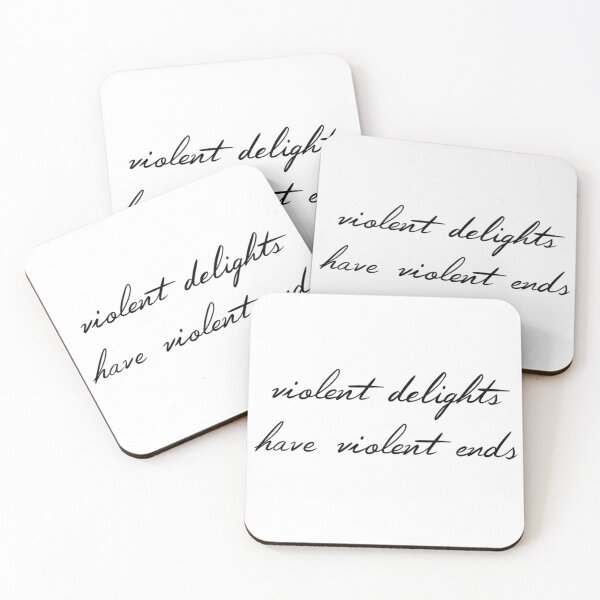 violent
violent delights
have violent ends
violent delights
have violent
violent delights
have violent ends